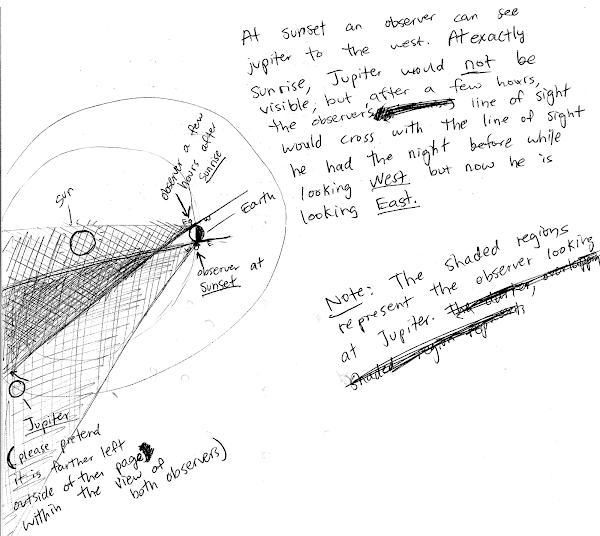 At sunset an observer can see
jupiter to the west. At exactly
sunrise, Jupiter would not be
visible, but after a few hours,
the observer's line of sight
would cross with the line of sight
he had the night before while
looking West but now he is
looking East.
Note: The shaded regions
represent the observer looking
at Jupiter.
observer a few
hours after
sunrise
Sun
Earth
E
W
W
E
observer
Sunset at
Jupiter
(please pretend
it is farther left
outside of the page
within the view of
both observers)